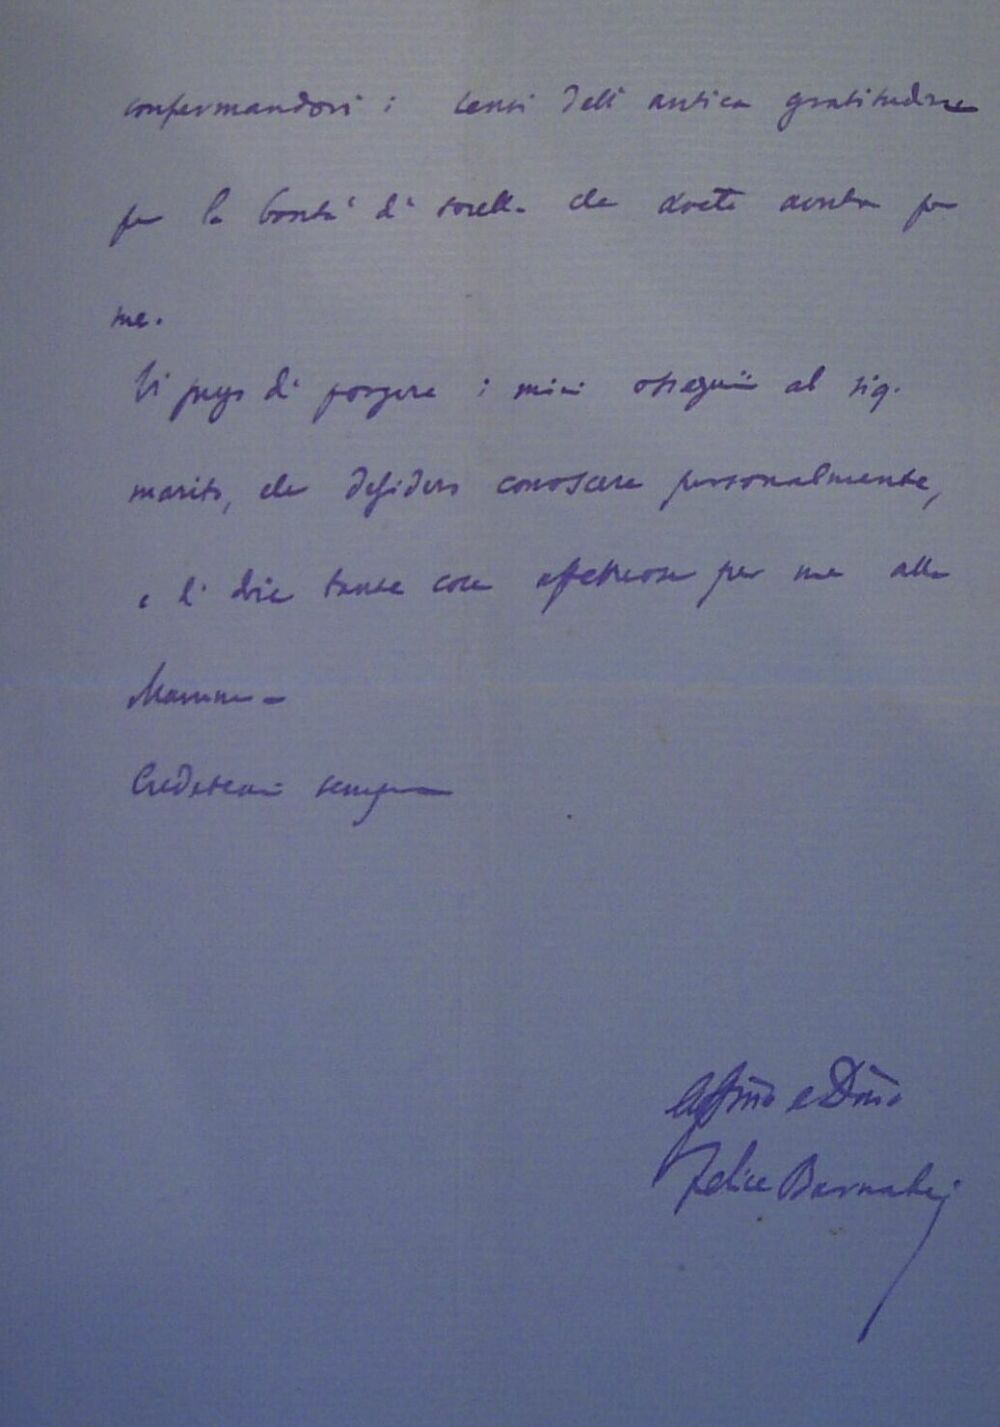 confermandovi i sensi dell'antica gratitudine
per la bontà di sorella che avete avuta per
me.
Vi prego di porgere i miei ossequii al sig.
marito, che desidero conoscere personalmente,
e di dire tante cose affettuose per me alla
Mamma -
Credetemi sempre
Affmo e Dmo
Felice Barnabei